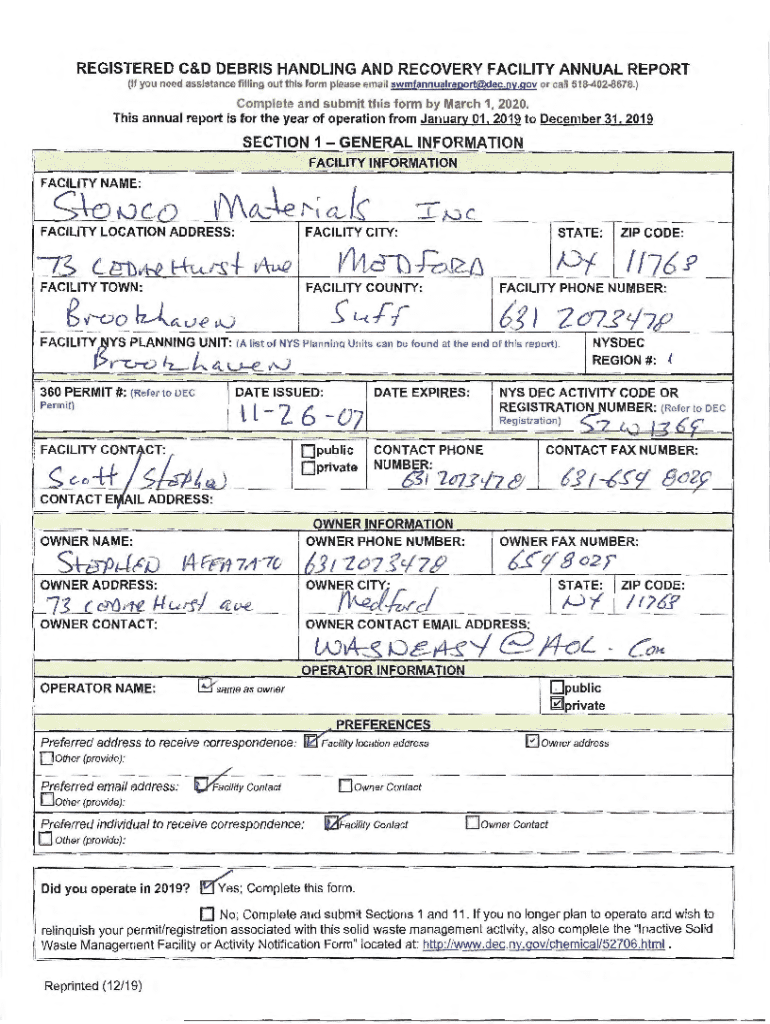 REGISTERED C&D DEBRIS HANDLING AND RECOVERY FACILITY ANNUAL REPORT
(If you need assistance filling out this form please email swmfannualreport@dec.ny.gov or call 518-402-8678.)
Complete and submit this form by March 1, 2020.
This annual report is for the year of operation from January 01, 2019 to December 31, 2019
SECTION 1 – GENERAL INFORMATION
FACILITY INFORMATION
FACILITY NAME:
Stonco Materials Inc
FACILITY LOCATION ADDRESS: FACILITY CITY: STATE: ZIP CODE:
73 Cedarhurst Ave Medford NY 11763
FACILITY TOWN: FACILITY COUNTY: FACILITY PHONE NUMBER:
Brookhaven Suff 631 2073478
FACILITY NYS PLANNING UNIT: (A list of NYS Planning Units can be found at the end of this report). NYSDEC
Brookhaven REGION #: 1
360 PERMIT #: (Refer to DEC DATE ISSUED: DATE EXPIRES: NYS DEC ACTIVITY CODE OR
Permit) 11-26-07 REGISTRATION NUMBER: (Refer to DEC
Registration)
FACILITY CONTACT: public CONTACT PHONE CONTACT FAX NUMBER:
Scott/ private NUMBER: 631 2073478 631-654 8029
CONTACT EMAIL ADDRESS:
OWNER INFORMATION
OWNER NAME: OWNER PHONE NUMBER: OWNER FAX NUMBER:
STEPHEN AFFATATO 6312073478 6548029
OWNER ADDRESS: OWNER CITY: STATE: ZIP CODE:
73 Cedarhurst ave Medford NY 11763
OWNER CONTACT: OWNER CONTACT EMAIL ADDRESS:
WASNEASY@AOL.Com
OPERATOR INFORMATION
OPERATOR NAME: same as owner public
private
PREFERENCES
Preferred address to receive correspondence: Facility location address Owner address
Other (provide):
Preferred email address: Facility Contact Owner Contact
Other (provide):
Preferred individual to receive correspondence: Facility Contact Owner Contact
Other (provide):
Did you operate in 2019? Yes; Complete this form.
No; Complete and submit Sections 1 and 11. If you no longer plan to operate and wish to
relinquish your permit/registration associated with this solid waste management activity, also complete the "Inactive Solid
Waste Management Facility or Activity Notification Form" located at: http://www.dec.ny.gov/chemical/52706.html .
Reprinted (12/19)